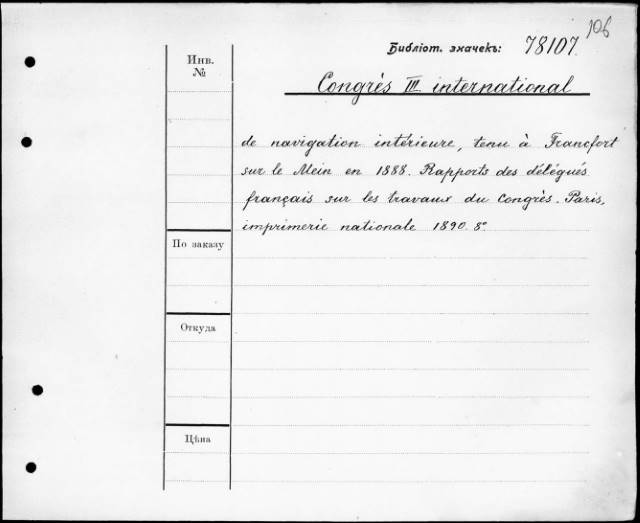 106
Библіот. значекъ: 78107.
Инв. №
Congrès III international
de navigation intérieure, tenu à Francfort
sur le Mein en 1888. Rapports des délégués
français sur les travaux du Congrès. Paris,
imprimerie nationale 1890. 8º
По заказу
Откуда
Цѣна